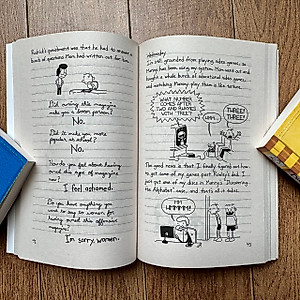 Rodrick's punishment was that he had to answer a
bunch of questions Mom had written out for him.
Did owning this magazine
make you a better person?
No.
Did it make you more
popular at school?
No.
How do you feel about having
owned this type of magazine
now?
I feel ashamed.
Do you have anything you
want to say to women for
having owned this offensive
magazine?
I'm sorry, women.
Wednesday
I'm still grounded from playing video games, so
Manny has been using my system. Mom went out and
bought a whole bunch of educational video games,
and watching Manny play them is like torture.
WHAT NUMBER
COMES AFTER
TWO AND RHYMES
WITH "TREE"?
HMM...
THREE!
THREE!
The good news is that I finally figured out how
to get some of my games past Rowley's dad. I
just put one of my discs in Manny's "Discovering
the Alphabet" case, and that's all it takes.